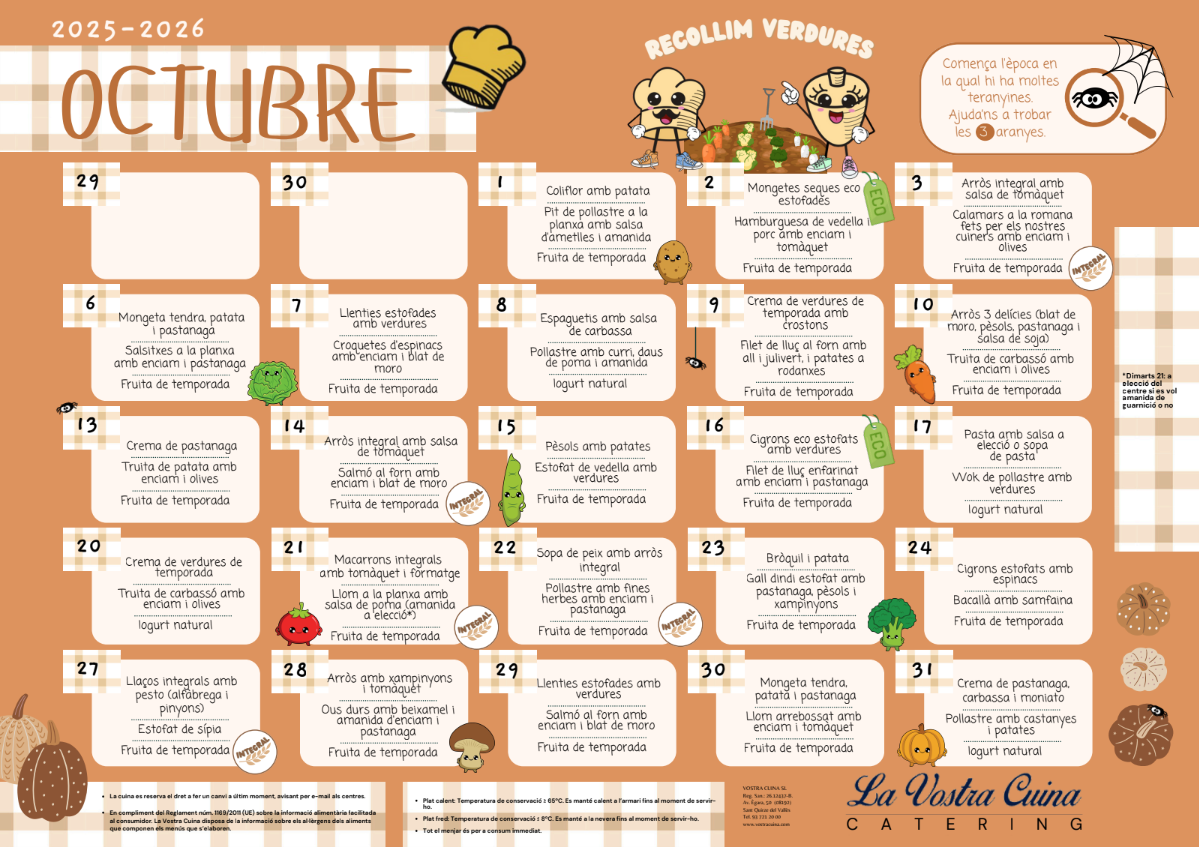 2025-2026
OCTUBRE
RECOLLIM VERDURES
Comença l'època en
la qual hi ha moltes
teranyines.
Ajuda'ns a trobar
les 3 aranyes.
29
30
1
Coliflor amb patata
Pit de pollastre a la
planxa amb salsa
d'ametlles i amanida
Fruita de temporada
2
Mongetes seques eco
estofades
Hamburguesa de vedella i
porc amb enciam i
tomàquet
Fruita de temporada
ECO
3
Arròs integral amb
salsa de tomàquet
Calamars a la romana
fets per els nostres
cuiners amb enciam i
olives
Fruita de temporada
INTEGRAL
6
Mongeta tendra, patata
i pastanaga
Salsitxes a la planxa
amb enciam i pastanaga
Fruita de temporada
7
Llenties estofades
amb verdures
Croquetes d'espinacs
amb enciam i blat de
moro
Fruita de temporada
8
Espaguetis amb salsa
de carbassa
Pollastre amb curri, daus
de poma i amanida
Iogurt natural
9
Crema de verdures de
temporada amb
crostons
Filet de lluç al forn amb
all i julivert, i patates a
rodanxes
Fruita de temporada
10
Arròs 3 delícies (blat de
moro, pèsols, pastanaga i
salsa de soja)
Truita de carbassó amb
enciam i olives
Fruita de temporada
13
Crema de pastanaga
Truita de patata amb
enciam i olives
Fruita de temporada
14
Arròs integral amb salsa
de tomàquet
Salmó al forn amb
enciam i blat de moro
Fruita de temporada
INTEGRAL
15
Pèsols amb patates
Estofat de vedella amb
verdures
Fruita de temporada
16
Cigrons eco estofats
amb verdures
Filet de lluç enfarinat
amb enciam i pastanaga
Fruita de temporada
ECO
17
Pasta amb salsa a
elecció o sopa
de pasta
Wok de pollastre amb
verdures
Iogurt natural
20
Crema de verdures de
temporada
Truita de carbassó amb
enciam i olives
Iogurt natural
21
Macarrons integrals
amb tomàquet i formatge
Llom a la planxa amb
salsa de poma (amanida
a elecció*)
Fruita de temporada
INTEGRAL
22
Sopa de peix amb arròs
integral
Pollastre amb fines
herbes amb enciam i
pastanaga
Fruita de temporada
INTEGRAL
23
Bròquil i patata
Gall dindi estofat amb
pastanaga, pèsols i
xampinyons
Fruita de temporada
24
Cigrons estofats amb
espinacs
Bacallà amb samfaina
Fruita de temporada
27
Llaços integrals amb
pesto (alfàbrega i
pinyons)
Estofat de sípia
Fruita de temporada
INTEGRAL
28
Arròs amb xampinyons
i tomàquet
Ous durs amb beixamel i
amanida d'enciam i
pastanaga
Fruita de temporada
29
Llenties estofades amb
verdures
Salmó al forn amb
enciam i blat de moro
Fruita de temporada
30
Mongeta tendra,
patata i pastanaga
Llom arrebossat amb
enciam i tomàquet
Fruita de temporada
31
Crema de pastanaga,
carbassa i moniato
Pollastre amb castanyes
i patates
Iogurt natural
*Dimarts 21: a
elecció del
centre si es vol
amanida de
guarnició o no
• La cuina es reserva el dret a fer un canvi a últim moment, avisant per e-mail als centres.
• En compliment del Reglament núm. 1169/2011 (UE) sobre la informació alimentària facilitada
al consumidor. La Vostra Cuina disposa de la informació sobre els al·lèrgens dels aliments
que componen els menús que s'elaboren.
• Plat calent: Temperatura de conservació ≥ 65ºC. Es manté calent a l'armari fins al moment de servir-
ho.
• Plat fred: Temperatura de conservació ≤ 8ºC. Es manté a la nevera fins al moment de servir-ho.
• Tot el menjar és per a consum immediat.
VOSTRA CUINA SL
Sant Quirze del Vallès
www.vostracuina.com
La Vostra Cuina
CATERING